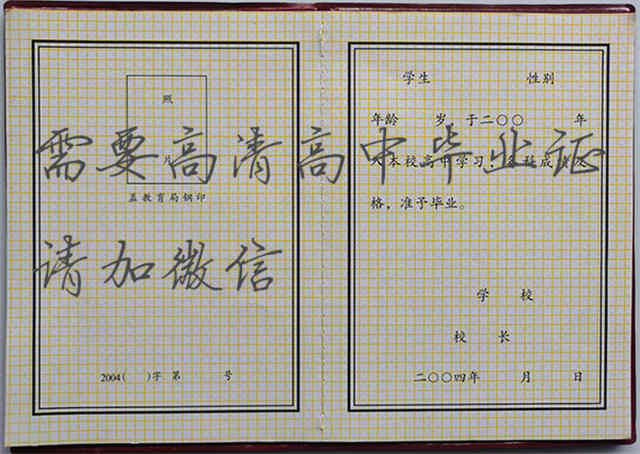 照
片
盖教育局钢印
2004( )字第 号
学生 性别
年龄 岁,于二〇〇 年
本校高中学习 成
格,准予毕业。
学 校
校 长
二〇〇四年 月 日
需要高清高中毕业证
请加微信